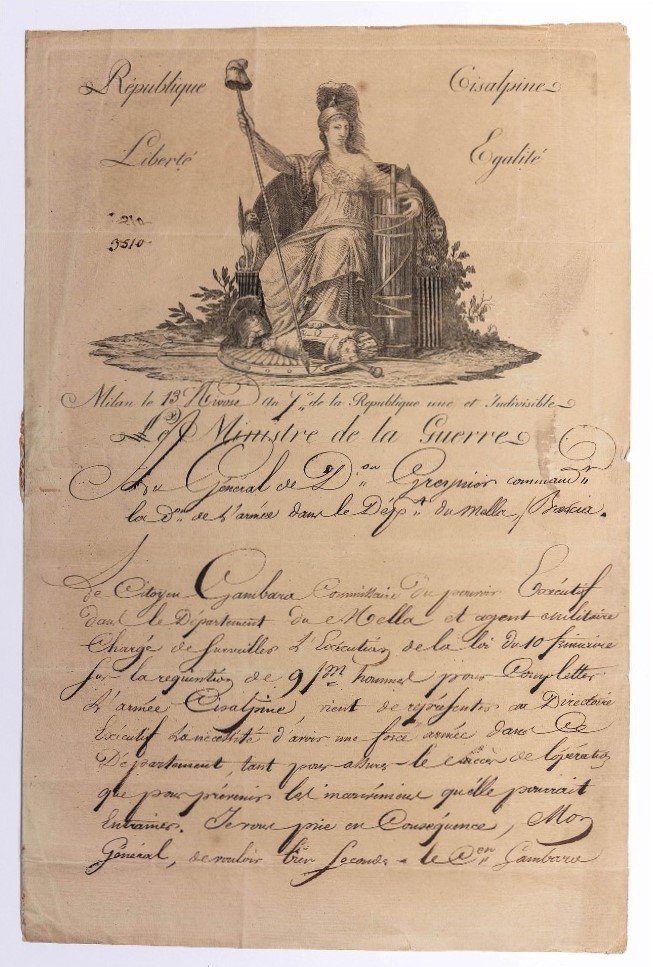 République Cisalpine
Liberté Egalité
210
3510
Milan le 13 Nivose An 7.e de la Republique une et Indivisible
Le Ministre de la Guerre
Au Général de D.on Greynier command.t
la D.on de L'armée dans le Dép.t du Mella, Brescia.
Le Citoyen Gambara Commissaire du pouvoir Exécutif
dans le Département du Mella et agent militaire
Chargé de surveiller L'Exécution de la loi du 10 frimaire
sur la requisition de 9 m hommes pour Completter
L'armée Cisalpine vient de représenter au Directoire
Exécutif La necéssité d'avoir une force armée dans Ce
Département, tant pour assurer le succès de l'opération
que pour prévenir les inconvéniens qu'elle pourrait
Entrainer. Je vous prie en Conséquence, Mon
Général, de vouloir bien seconder le C.en Gambara